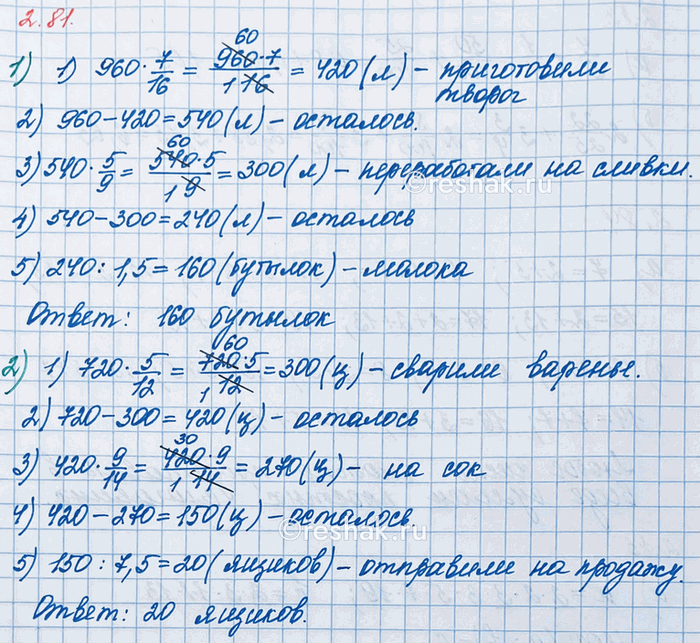 2.81.
1) 1) 960 · 7/16 = 960·7/16 = 420 (л) – приготовили
60
1
творог
2) 960 – 420 = 540 (л) – осталось.
3) 540 · 5/9 = 540·5/9 = 300 (л) – переработали на сливки.
60
1
©reshak.ru
4) 540 – 300 = 240 (л) – осталось
5) 240 : 1,5 = 160 (бутылок) – молока
Ответ: 160 бутылок
2) 1) 720 · 5/12 = 720·5/12 = 300 (ц) – сварили варенье.
60
1
2) 720 – 300 = 420 (ц) – осталось
3) 420 · 9/14 = 420·9/14 = 270 (ц) – на сок
30
1
4) 420 – 270 = 150 (ц) – осталось.
©reshak.ru
5) 150 : 7,5 = 20 (ящиков) – отправили на продажу.
Ответ: 20 ящиков.